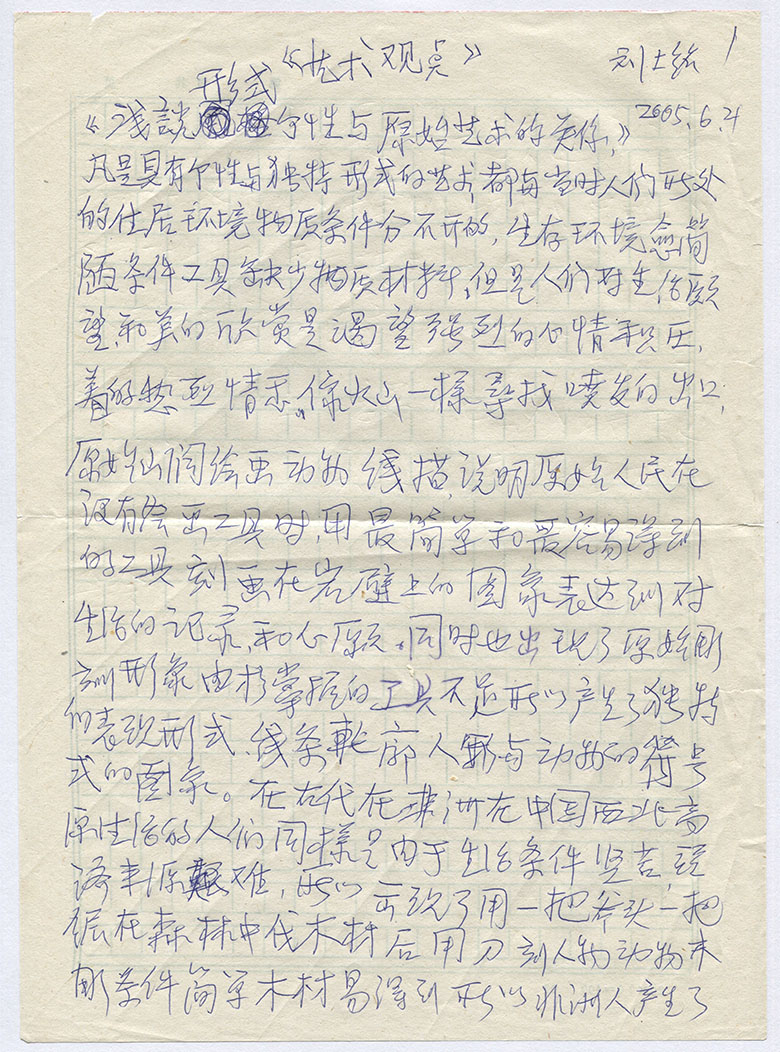 《艺术观点》
刘士铭
1
2005.6.21
形式
《浅談个性与原始艺术的关係》
凡是具有个性与独特形式的艺术，都与当时人们所处
的住居环境物质条件分不开的，生存环境愈简
陋条件工具缺少物质材料，但是人们对生活愿
望和美的欣赏是渴望强烈的心情积压，
着的热烈情感，像火山一様寻找喷发的出口，
原始山洞绘画动物线描，说明原始人民在
没有绘画工具时，用最简单和最容易得到
的工具刻画在岩壁上的图象表达到对
生活的记录，和心愿。同时也出现了原始彫
刻形象由於掌握的工具不足所以产生了独特
的表现形式、线条轮廓人物与动物的符号
式的图象。在古代在非洲在中国西北高
原生活的人们同様是由于生活条件坚苦经
济来源艱难，所以出现了用一把斧头一把
锯在森林中伐木材后用刀刻人物动物木
彫条件简单木材易得到所以非洲人产生了